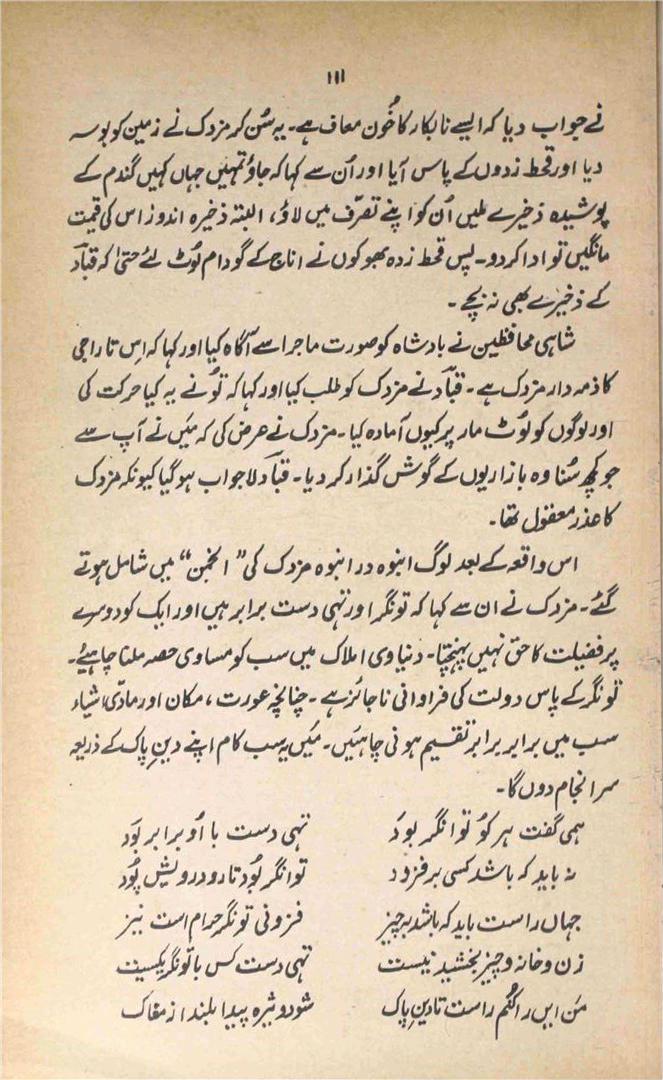 ۱۱۱
نے جواب دیا کہ ایسے نابکار کا خُون معاف ہے۔ یہ سُن کر مزدک نے زمین کو بوسہ
دیا اور قحط زدوں کے پاس آیا اور اُن سے کہا کہ جاؤ تمہیں جہاں کہیں گندم کے
پوشیدہ ذخیرے ملیں اُن کو اپنے تصرّف میں لاؤ، البتہ ذخیرہ اندوز اس کی قیمت
مانگیں تو ادا کر دو۔ پس قحط زدہ بھوکوں نے اناج کے گودام لُوٹ لئے حتیٰ کہ قباد
کے ذخیرے بھی نہ بچے۔
شاہی محافظین نے بادشاہ کو صورت ماجرا سے آگاہ کیا اور کہا کہ اِس تاراجی
کا ذمہ دار مزدک ہے۔ قباد نے مزدک کو طلب کیا اور کہا کہ تُو نے یہ کیا حرکت کی
اور لوگوں کو لُوٹ مار پر کیوں آمادہ کیا۔ مزدک نے عرض کی کہ میَں نے آپ سے
جو کچھ سُنا وہ بازاریوں کے گوش گذار کر دیا۔ قباد لاجواب ہو گیا کیونکہ مزدک
کا عذر معقول تھا۔
اس واقعہ کے بعد لوگ انبوہ در انبوہ مزدک کی ”انجمن“ میں شامل ہوتے
گئے۔ مزدک نے ان سے کہا کہ تونگر اور تہی دست برابر ہیں اور ایک کو دوسرے
پر فضیلت کا حق نہیں پہنچتا۔ دنیاوی املاک میں سب کو مساوی حصہ ملنا چاہیئے۔
تونگر کے پاس دولت کی فراوانی ناجائز ہے۔ چنانچہ عورت، مکان اور مادّی اشیاء
سب میں برابر برابر تقسیم ہونی چاہئیں۔ میَں یہ سب کام اپنے دینِ پاک کے ذریعہ
سر انجام دوں گا۔
ہمی گفت ہر کوُ توانگر بودَ تہی دست با اُو برابر بوَد
نہ باید کہ باشد کسی بر فزود توانگر بُود تار و درویش پُود
جہاں راست باید کہ باشد بہ چیز فزونی تونگر حرام است نیز
زن و خانہ و چیز بخشید نیست تہی دست کس با تونگر یکسیت
مَن ایں را کُنم راست تا دینِ پاک شود ویژہ پیدا بلند از مغاک